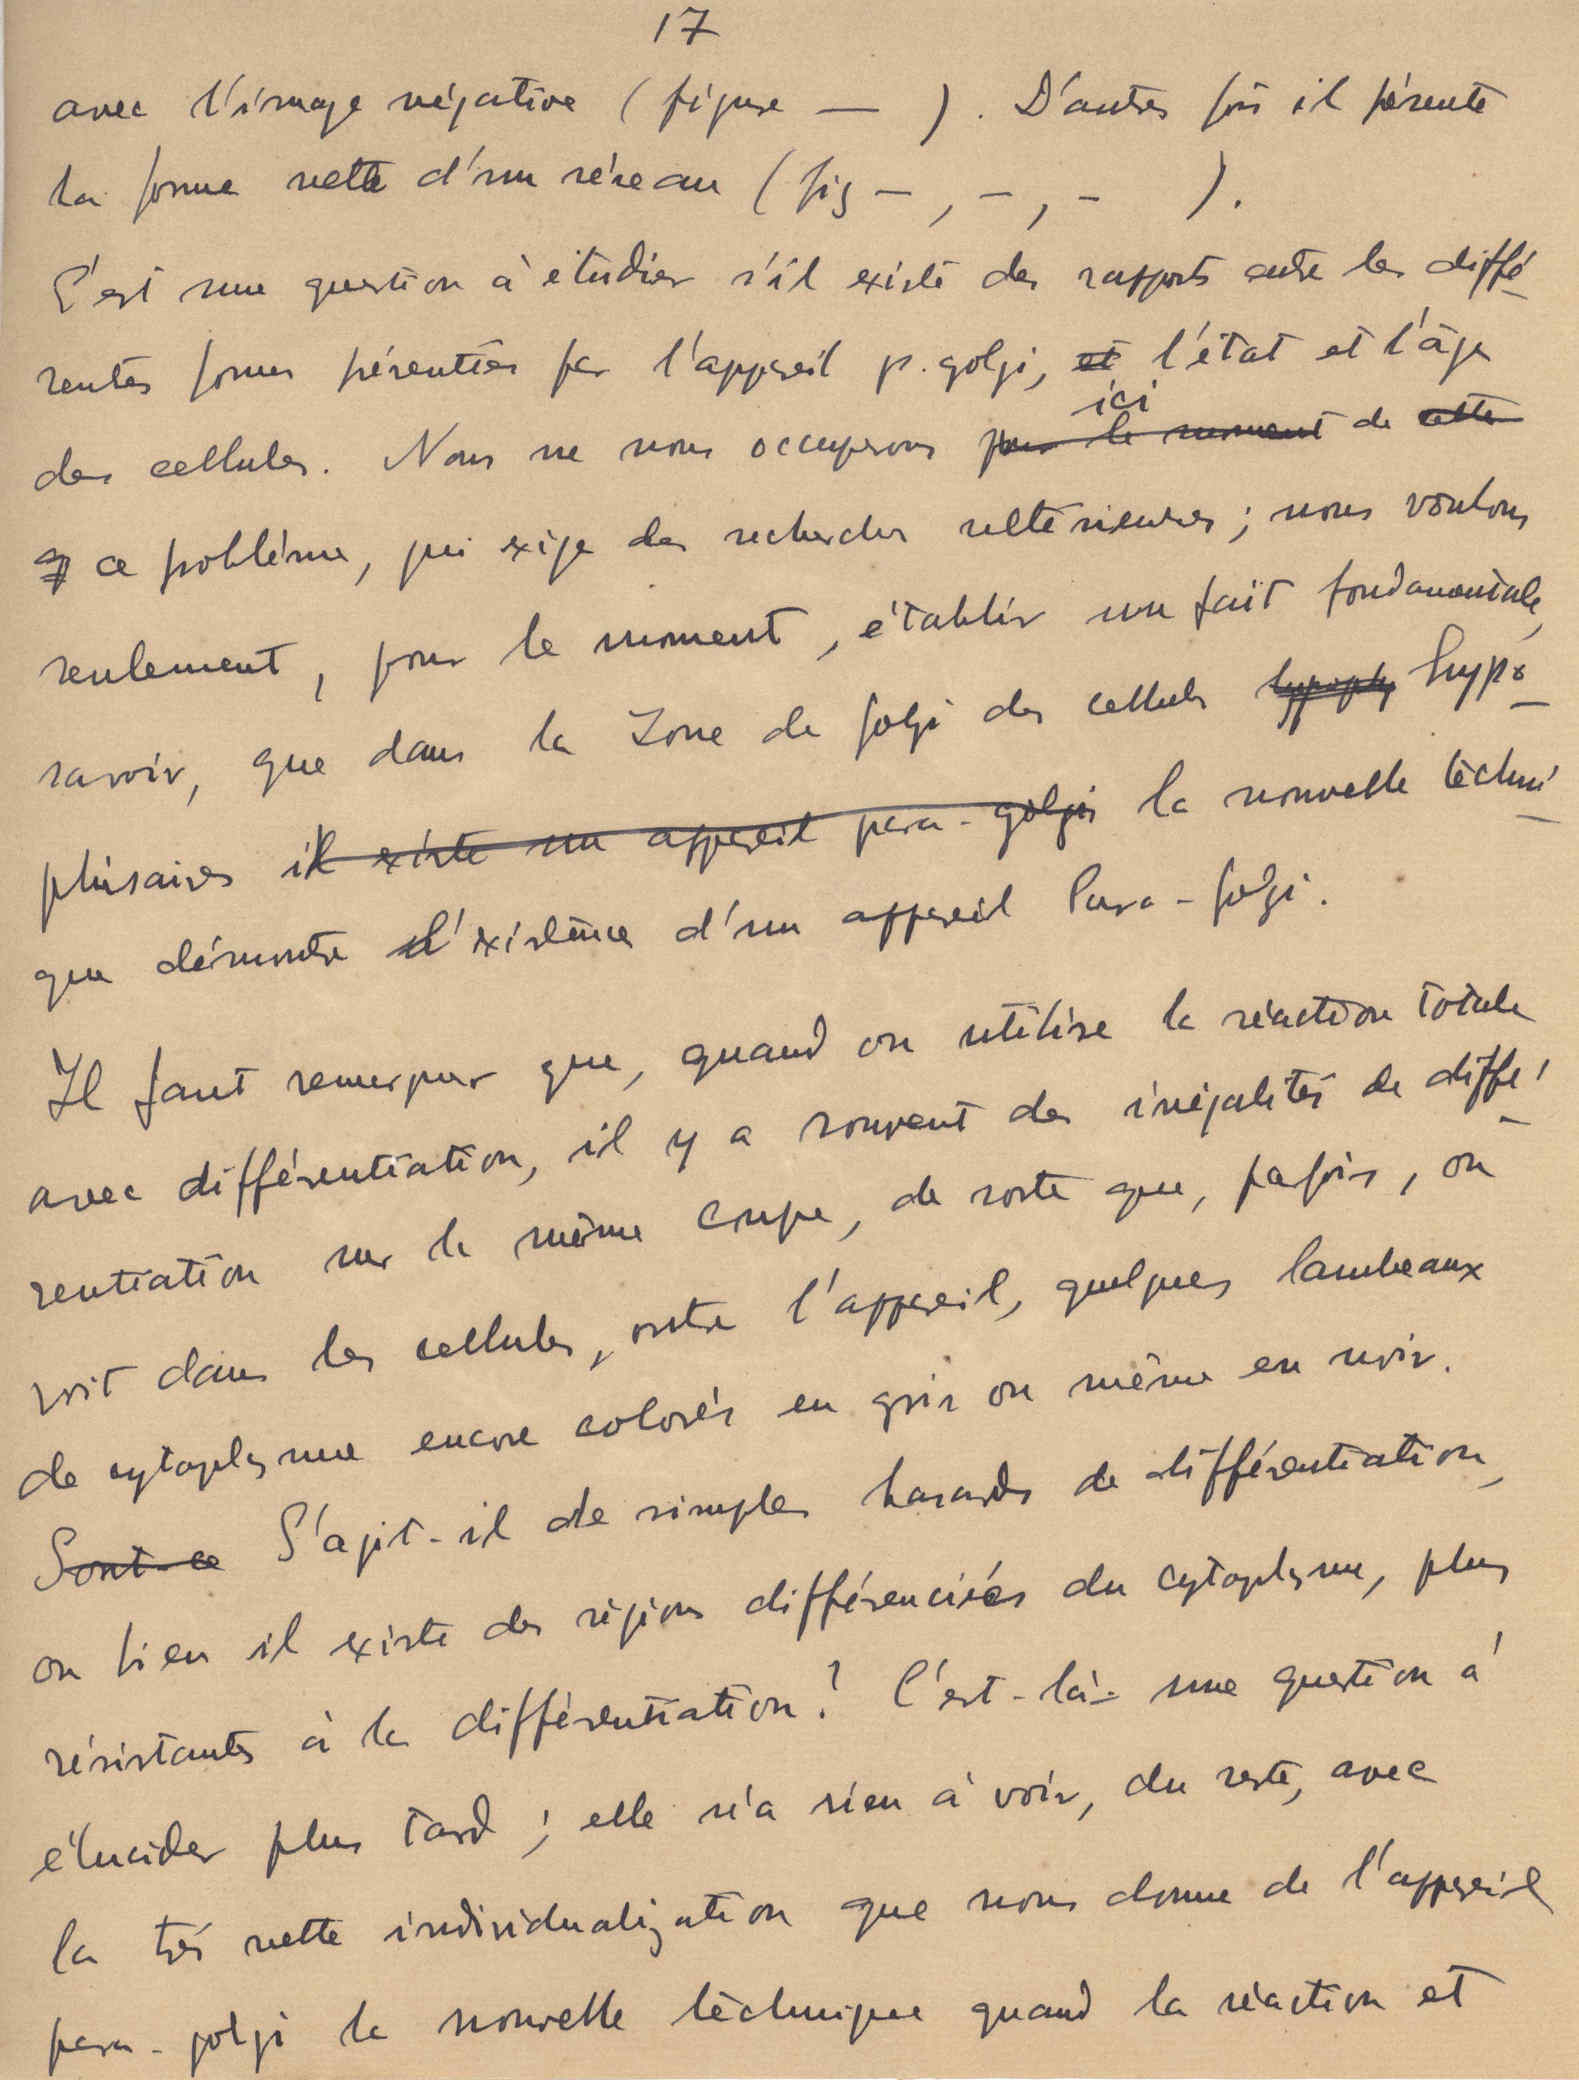 17
avec l'image négative ( figure — ). D'autres fois il présente
la forme nette d'un réseau ( fig - , - , - ).
C'est une question à étudier s'il existe des rapports entre les diffé-
rentes formes présentées par l'appareil p. golgi, et l'état et l'âge
ici
des cellules. Nous ne nous occuperons pour le moment de cette
q ce problème, qui exige des recherches ultérieures ; nous voulons
seulement, pour le moment, établir un fait fondamentale,
savoir, que dans la zone de golgi des cellules hypophy hypo-
phisaires il existe un appareil para-golgi la nouvelle techni-
que démontre l'existence d'un appareil Para-golgi.
Il faut remarquer que, quand on utilise la réaction totale
avec différentiation, il y a souvent des inégalités de diffé-
rentiation sur la même coupe, de sorte que, parfois, on
voit dans les cellules, outre l'appareil, quelques lambeaux
de cytoplasme encore colorés en gris ou même en noir.
Sont-ce S'agit-il de simples hasards de différentiation,
ou bien il existe des régions différenciées du cytoplasme, plus
résistantes à la différentiation? C'est-là- une question à
élucider plus tard ; elle n'a rien à voir, du reste, avec
la très nette individualization que nous donne de l'appareil
para-golgi la nouvelle téchnique quand la réaction et